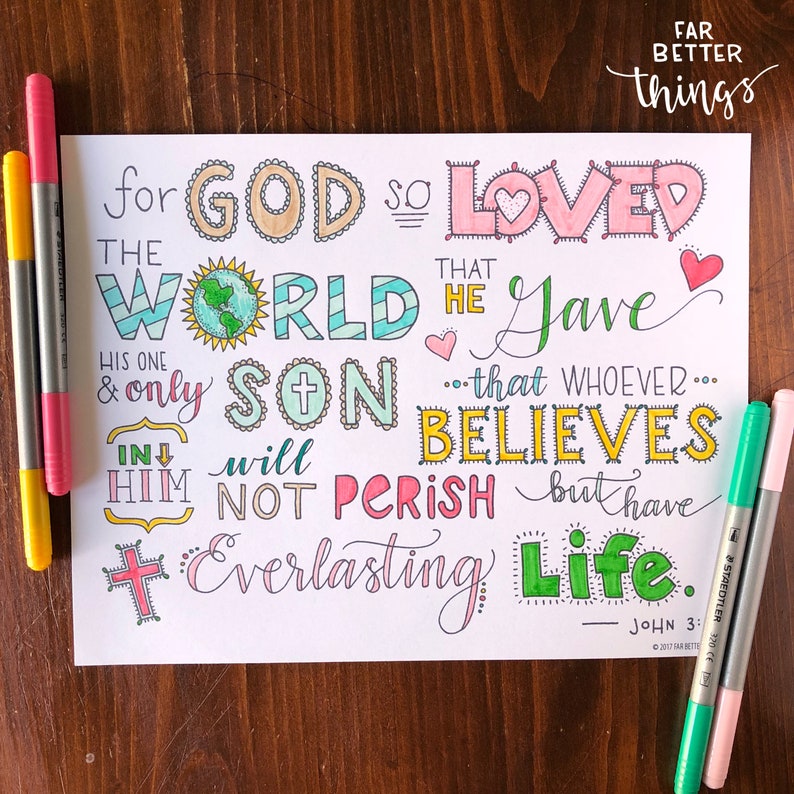 FAR
BETTER
things
for GOD so LOVED
THE
WORLD
THAT
HE
Gave
HIS ONE
& only
SON
that WHOEVER
BELIEVES
IN
HIM
will
NOT PERISH
but have
Everlasting
Life.
— JOHN 3:
© 2017 FAR BETTER
STAEDTLER
320 CE
STAEDTLER
320 CE